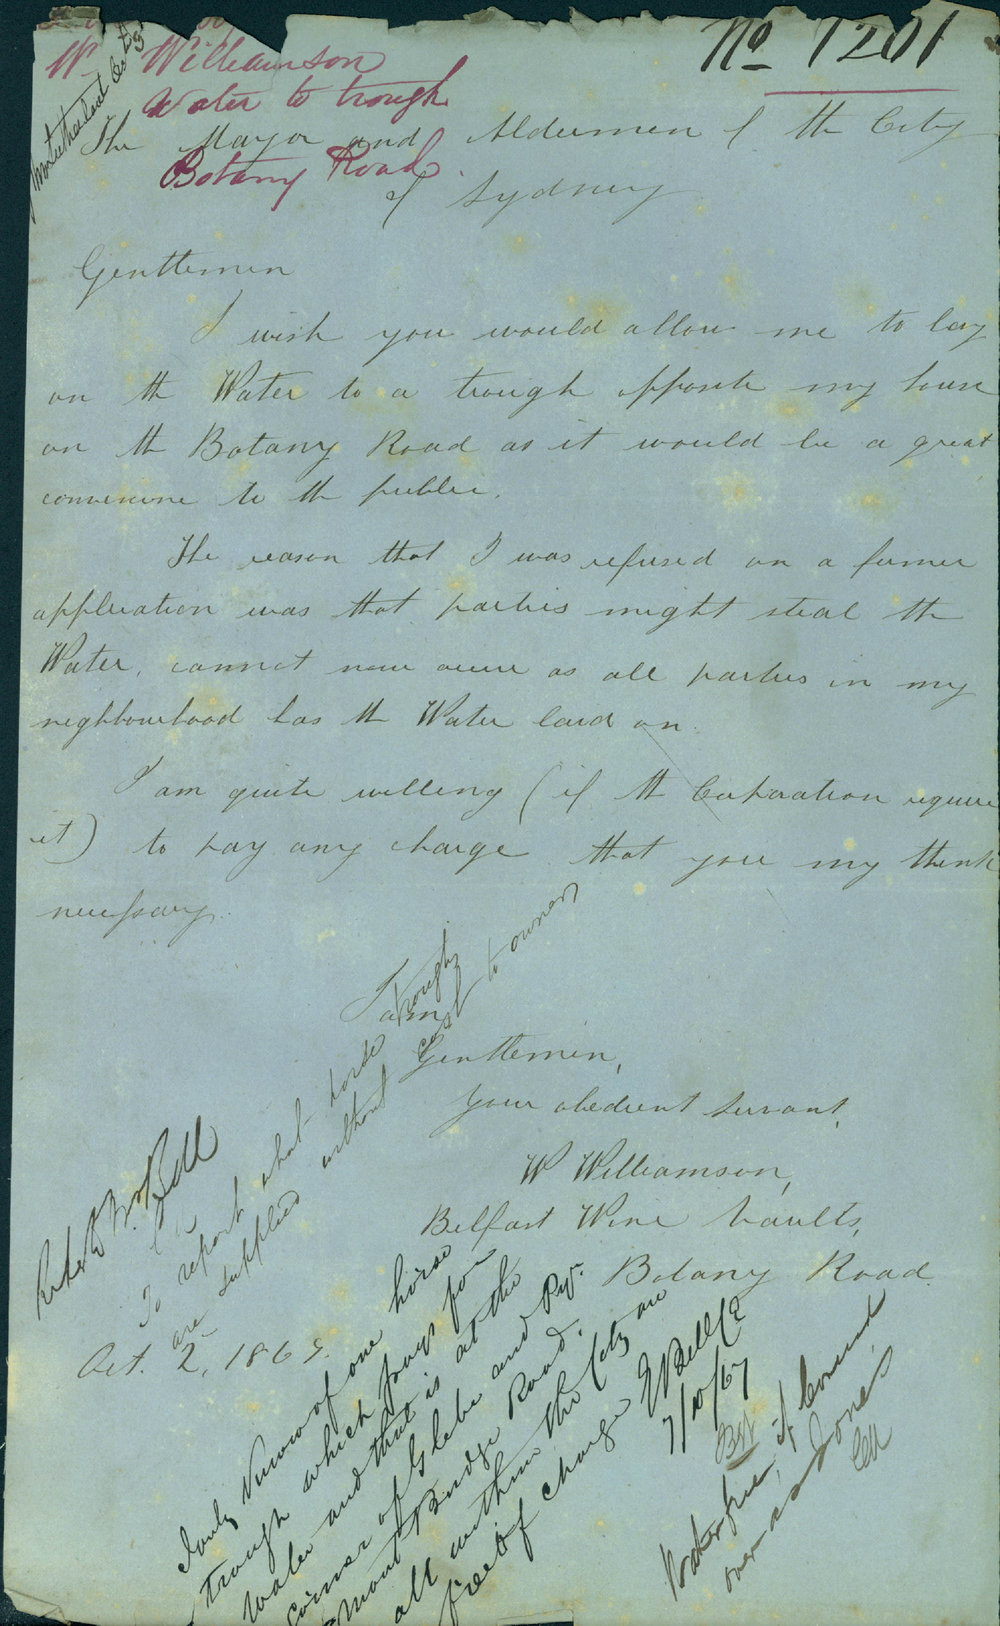 No 1201
W. Williamson
Water to trough
Botany Road.
The Mayor and Aldermen of the City
of Sydney
Gentlemen
I wish you would allow me to lay
on th Water to a trough opposite my house
on th Botany Road as it would be a great
convenine to th public.
The reason that I was refused on a former
application was that parties might steal the
Water, cannot now occur as all parties in my
neighbourhood has th Water laid on.
I am quite willing (if th Corporation require
it) to pay any charge that you my think
necessary.
I am
Gentlemen,
Your obedient Servant,
W Williamson,
Belfast Wine Vaults,
Botany Road.
Oct. 2, 1867.
To report what horse troughs
are supplied without cost to owners
I only know of one horse
trough which pays for
Water and that is at the
corner of Glebe and Pyr
mont Bridge Road.
all within the City are
free of charge EBell CE
7/10/67
Water free, if Council